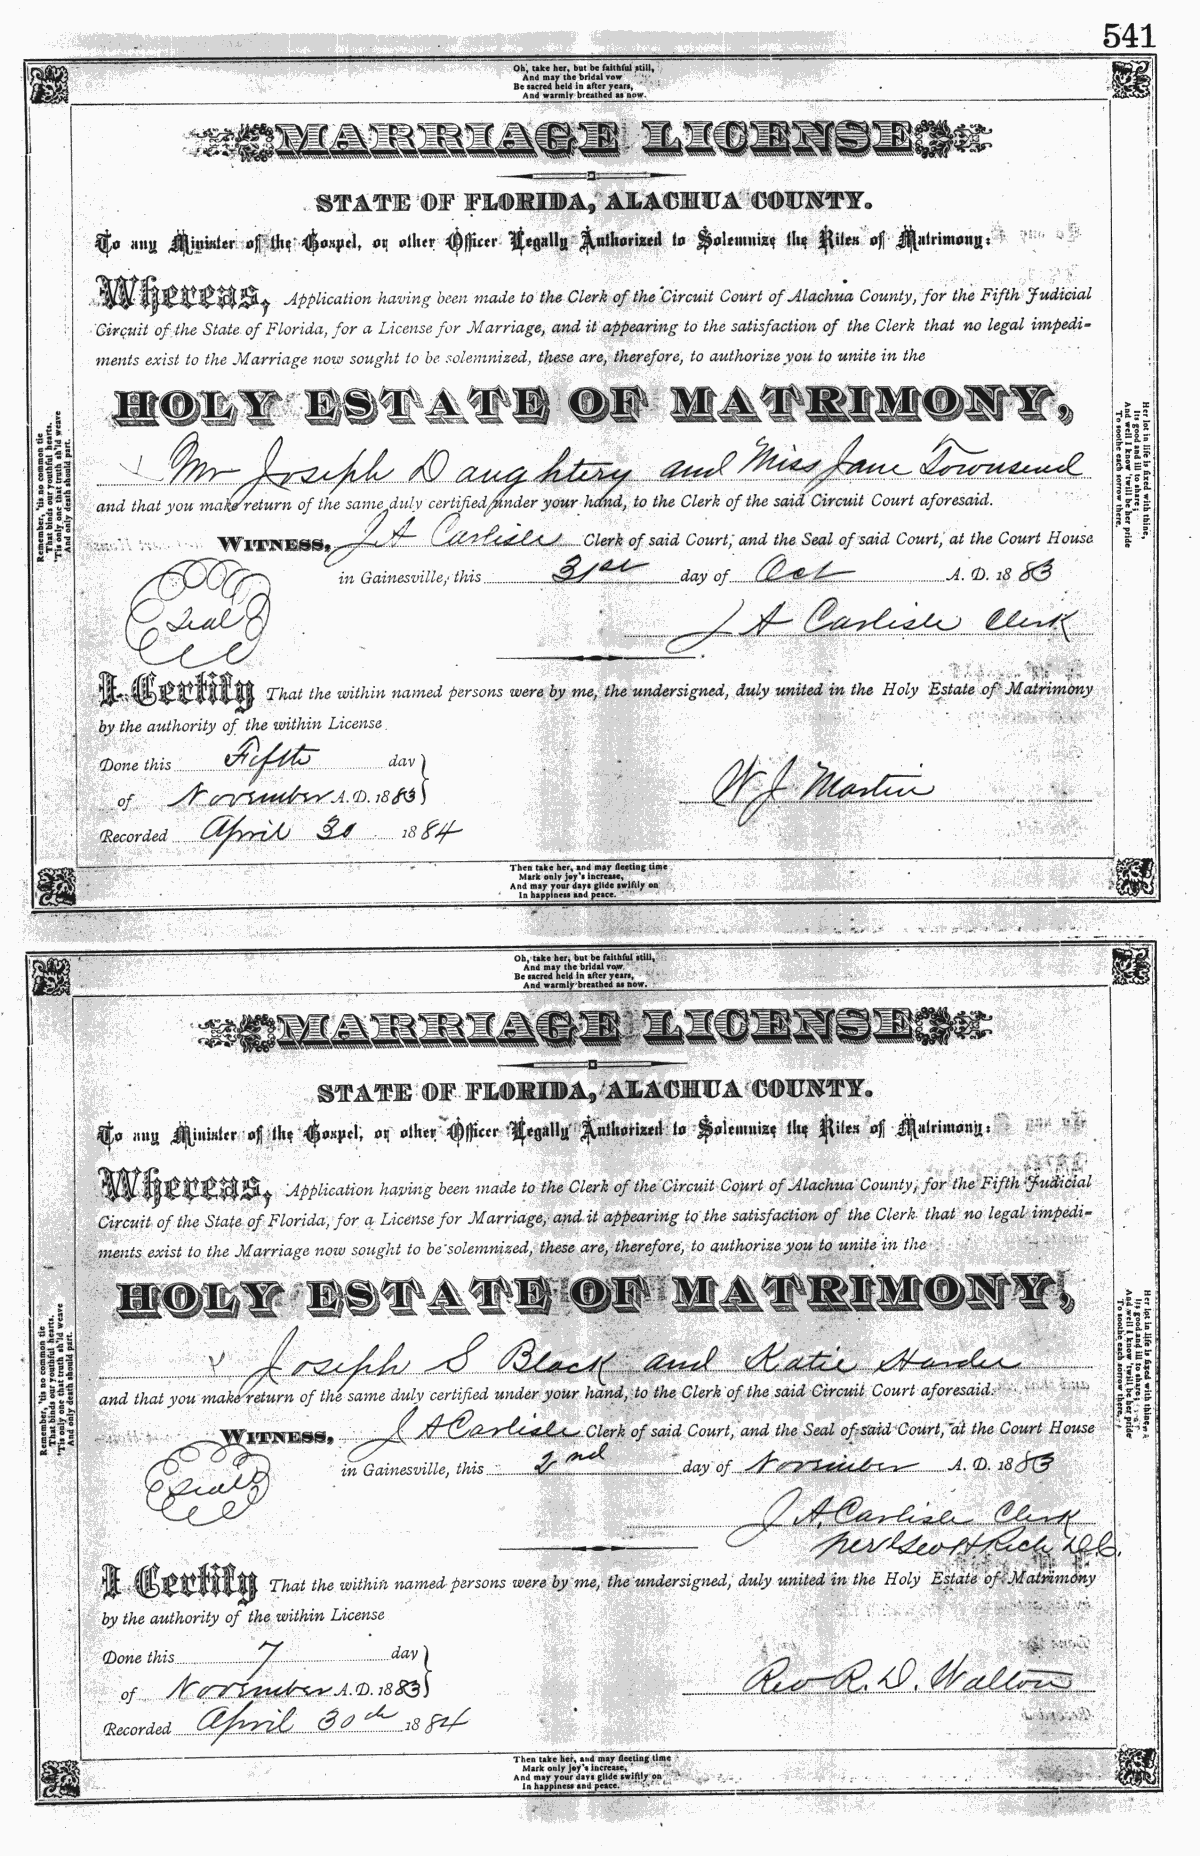 541
Oh, take her, but be faithful still,
And may the bridal vow
Be sacred held in after years,
And warmly breathed as now.
MARRIAGE LICENSE
STATE OF FLORIDA, ALACHUA COUNTY.
To any Minister of the Gospel, or other Officer Legally Authorized to Solemnize the Rites of Matrimony:
Whereas, Application having been made to the Clerk of the Circuit Court of Alachua County, for the Fifth Judicial
Circuit of the State of Florida, for a License for Marriage, and it appearing to the satisfaction of the Clerk that no legal impedi-
ments exist to the Marriage now sought to be solemnized, these are, therefore, to authorize you to unite in the
HOLY ESTATE OF MATRIMONY,
Mr Joseph Daughtery and Miss Jane Townsend
and that you make return of the same duly certified under your hand, to the Clerk of the said Circuit Court aforesaid.
WITNESS, J A Carlisle Clerk of said Court, and the Seal of said Court, at the Court House
in Gainesville, this 31st day of Oct A. D. 1883
Seal
J A Carlisle Clerk
I Certify That the within named persons were by me, the undersigned, duly united in the Holy Estate of Matrimony
by the authority of the within License
Done this Fifth day
of November A. D. 1883
W J Martin
Recorded April 30 1884
Remember, 'tis no common tie
That binds our youthful hearts,
'Tis only one that truth sh'ld weave
And only death should part.
Her lot in life is fixed with thine,
Its good and ill to share;
And well I know 'twill be her pride
To soothe each sorrow there.
Then take her, and may fleeting time
Mark only joy's increase,
And may your days glide swiftly on
In happiness and peace.
Oh, take her, but be faithful still,
And may the bridal vow
Be sacred held in after years,
And warmly breathed as now.
MARRIAGE LICENSE
STATE OF FLORIDA, ALACHUA COUNTY.
To any Minister of the Gospel, or other Officer Legally Authorized to Solemnize the Rites of Matrimony:
Whereas, Application having been made to the Clerk of the Circuit Court of Alachua County, for the Fifth Judicial
Circuit of the State of Florida, for a License for Marriage, and it appearing to the satisfaction of the Clerk that no legal impedi-
ments exist to the Marriage now sought to be solemnized, these are, therefore, to authorize you to unite in the
HOLY ESTATE OF MATRIMONY,
Joseph S Black and Katie Harder
and that you make return of the same duly certified under your hand, to the Clerk of the said Circuit Court aforesaid.
WITNESS, J A Carlisle Clerk of said Court, and the Seal of said Court, at the Court House
in Gainesville, this 2nd day of November A. D. 1883
Seal
J. A. Carlisle Clerk
per Geo H Rich D.C.
I Certify That the within named persons were by me, the undersigned, duly united in the Holy Estate of Matrimony
by the authority of the within License
Done this 7 day
of November A. D. 1883
Rev R. D. Walton
Recorded April 30th 1884
Remember, 'tis no common tie
That binds our youthful hearts,
'Tis only one that truth sh'ld weave
And only death should part.
Her lot in life is fixed with thine,
Its good and ill to share;
And well I know 'twill be her pride
To soothe each sorrow there.
Then take her, and may fleeting time
Mark only joy's increase,
And may your days glide swiftly on
In happiness and peace.